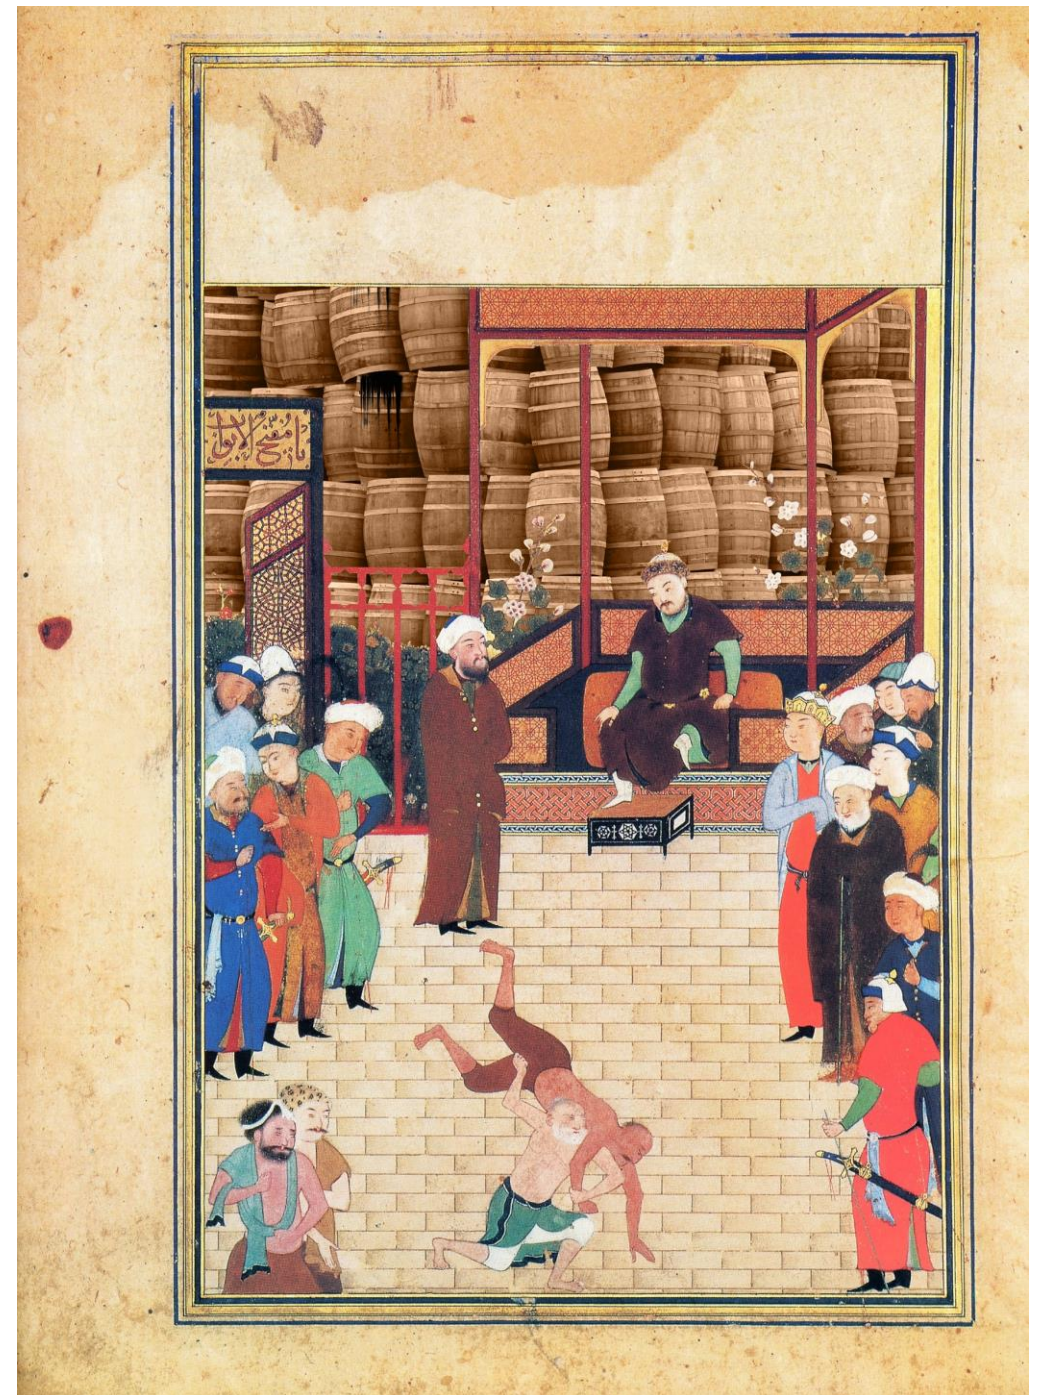 يا مفتح الابواب